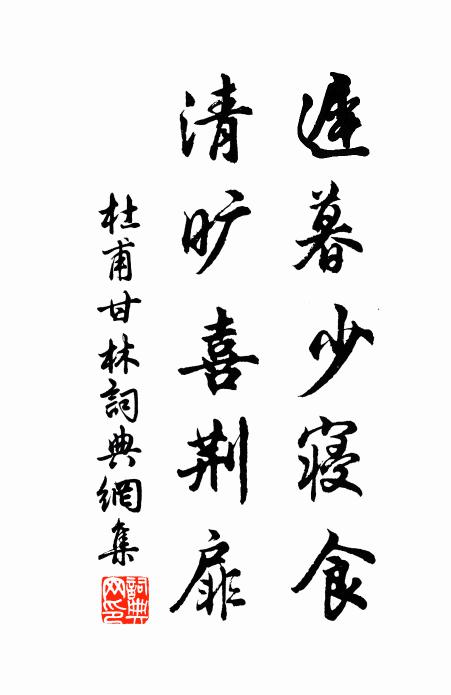 遲暮少寢食
清旷喜荆扉
杜甫甘林詞典網集
詞典网印